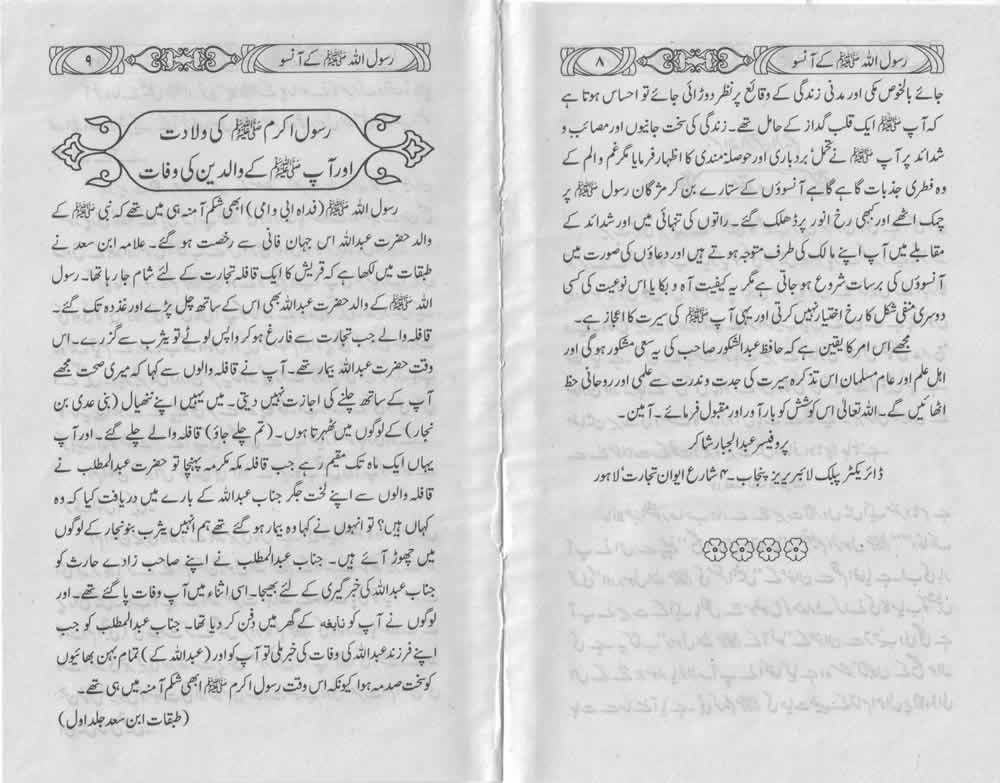 رسول اللہ ﷺ کے آنسو ۸
جائے بالخصوص مکی اور مدنی زندگی کے وقائع پر نظر دوڑائی جائے تو احساس ہوتا ہے
کہ آپ ﷺ ایک قلب گداز کے حامل تھے۔ زندگی کی سخت جانیوں اور مصائب و
شدائد پر آپ ﷺ نے تحمل' بردباری اور حوصلہ مندی کا اظہار فرمایا مگر غم و الم کے
وہ فطری جذبات گاہے گاہے آنسوؤں کے ستارے بن کر مژگان رسول ﷺ پر
چمک اٹھے اور کبھی رخ انور پر ڈھلک گئے۔ راتوں کی تنہائی میں اور شدائد کے
مقابلے میں آپ اپنے مالک کی طرف متوجہ ہوتے ہیں اور دعاؤں کی صورت میں
آنسوؤں کی برسات شروع ہو جاتی ہے مگر یہ کیفیت آہ و بکا یا اس نوعیت کی کسی
دوسری منفی شکل کا رخ اختیار نہیں کرتی اور یہی آپ ﷺ کی سیرت کا اعجاز ہے۔
مجھے اس امر کا یقین ہے کہ حافظ عبدالشکور صاحب کی یہ سعی مشکور ہو گی اور
اہل علم اور عام مسلمان اس تذکرہ سیرت کی جدت و ندرت سے علمی اور روحانی حظ
اٹھائیں گے۔ اللہ تعالیٰ اس کوشش کو بار آور اور مقبول فرمائے۔ آمین۔
پروفیسر عبدالجبار شاکر
ڈائریکٹر پبلک لائبریریز پنجاب۔ ۴ شارع ایوان تجارت' لاہور
رسول اللہ ﷺ کے آنسو ۹
رسول اکرم ﷺ کی ولادت
اور آپ ﷺ کے والدین کی وفات
رسول اللہ ﷺ (فداہ ابی و امی) ابھی شکم آمنہ ہی میں تھے کہ نبی ﷺ کے
والد حضرت عبداللہ اس جہان فانی سے رخصت ہو گئے۔ علامہ ابن سعد نے
طبقات میں لکھا ہے کہ قریش کا ایک قافلہ تجارت کے لئے شام جا رہا تھا۔ رسول
اللہ ﷺ کے والد حضرت عبداللہ بھی اس کے ساتھ چل پڑے اور غذدہ تک گئے۔
قافلہ والے جب تجارت سے فارغ ہو کر واپس لوٹے تو یثرب سے گزرے۔ اس
وقت حضرت عبداللہ بیمار تھے۔ آپ نے قافلہ والوں سے کہا کہ میری صحت مجھے
آپ کے ساتھ چلنے کی اجازت نہیں دیتی۔ میں یہیں اپنے ننھیال (بنی عدی بن
نجار) کے لوگوں میں ٹھہرتا ہوں۔ (تم چلے جاؤ) قافلہ والے چلے گئے۔ اور آپ
یہاں ایک ماہ تک مقیم رہے جب قافلہ مکہ مکرمہ پہنچا تو حضرت عبدالمطلب نے
قافلہ والوں سے اپنے لخت جگر جناب عبداللہ کے بارے میں دریافت کیا کہ وہ
کہاں ہیں؟ تو انہوں نے کہا وہ بیمار ہو گئے تھے ہم انہیں یثرب بنو نجار کے لوگوں
میں چھوڑ آئے ہیں۔ جناب عبدالمطلب نے اپنے صاحب زادے حارث کو
جناب عبداللہ کی خبر گیری کے لئے بھیجا۔ اسی اثناء میں آپ وفات پا گئے تھے۔ اور
لوگوں نے آپ کو نابغہ کے گھر میں دفن کر دیا تھا۔ جناب عبدالمطلب کو جب
اپنے فرزند عبداللہ کی وفات کی خبر ملی تو آپ کو اور (عبداللہ کے) تمام بہن بھائیوں
کو سخت صدمہ ہوا کیونکہ اس وقت رسول اکرم ﷺ ابھی شکم آمنہ میں ہی تھے۔
(طبقات ابن سعد جلد اول)